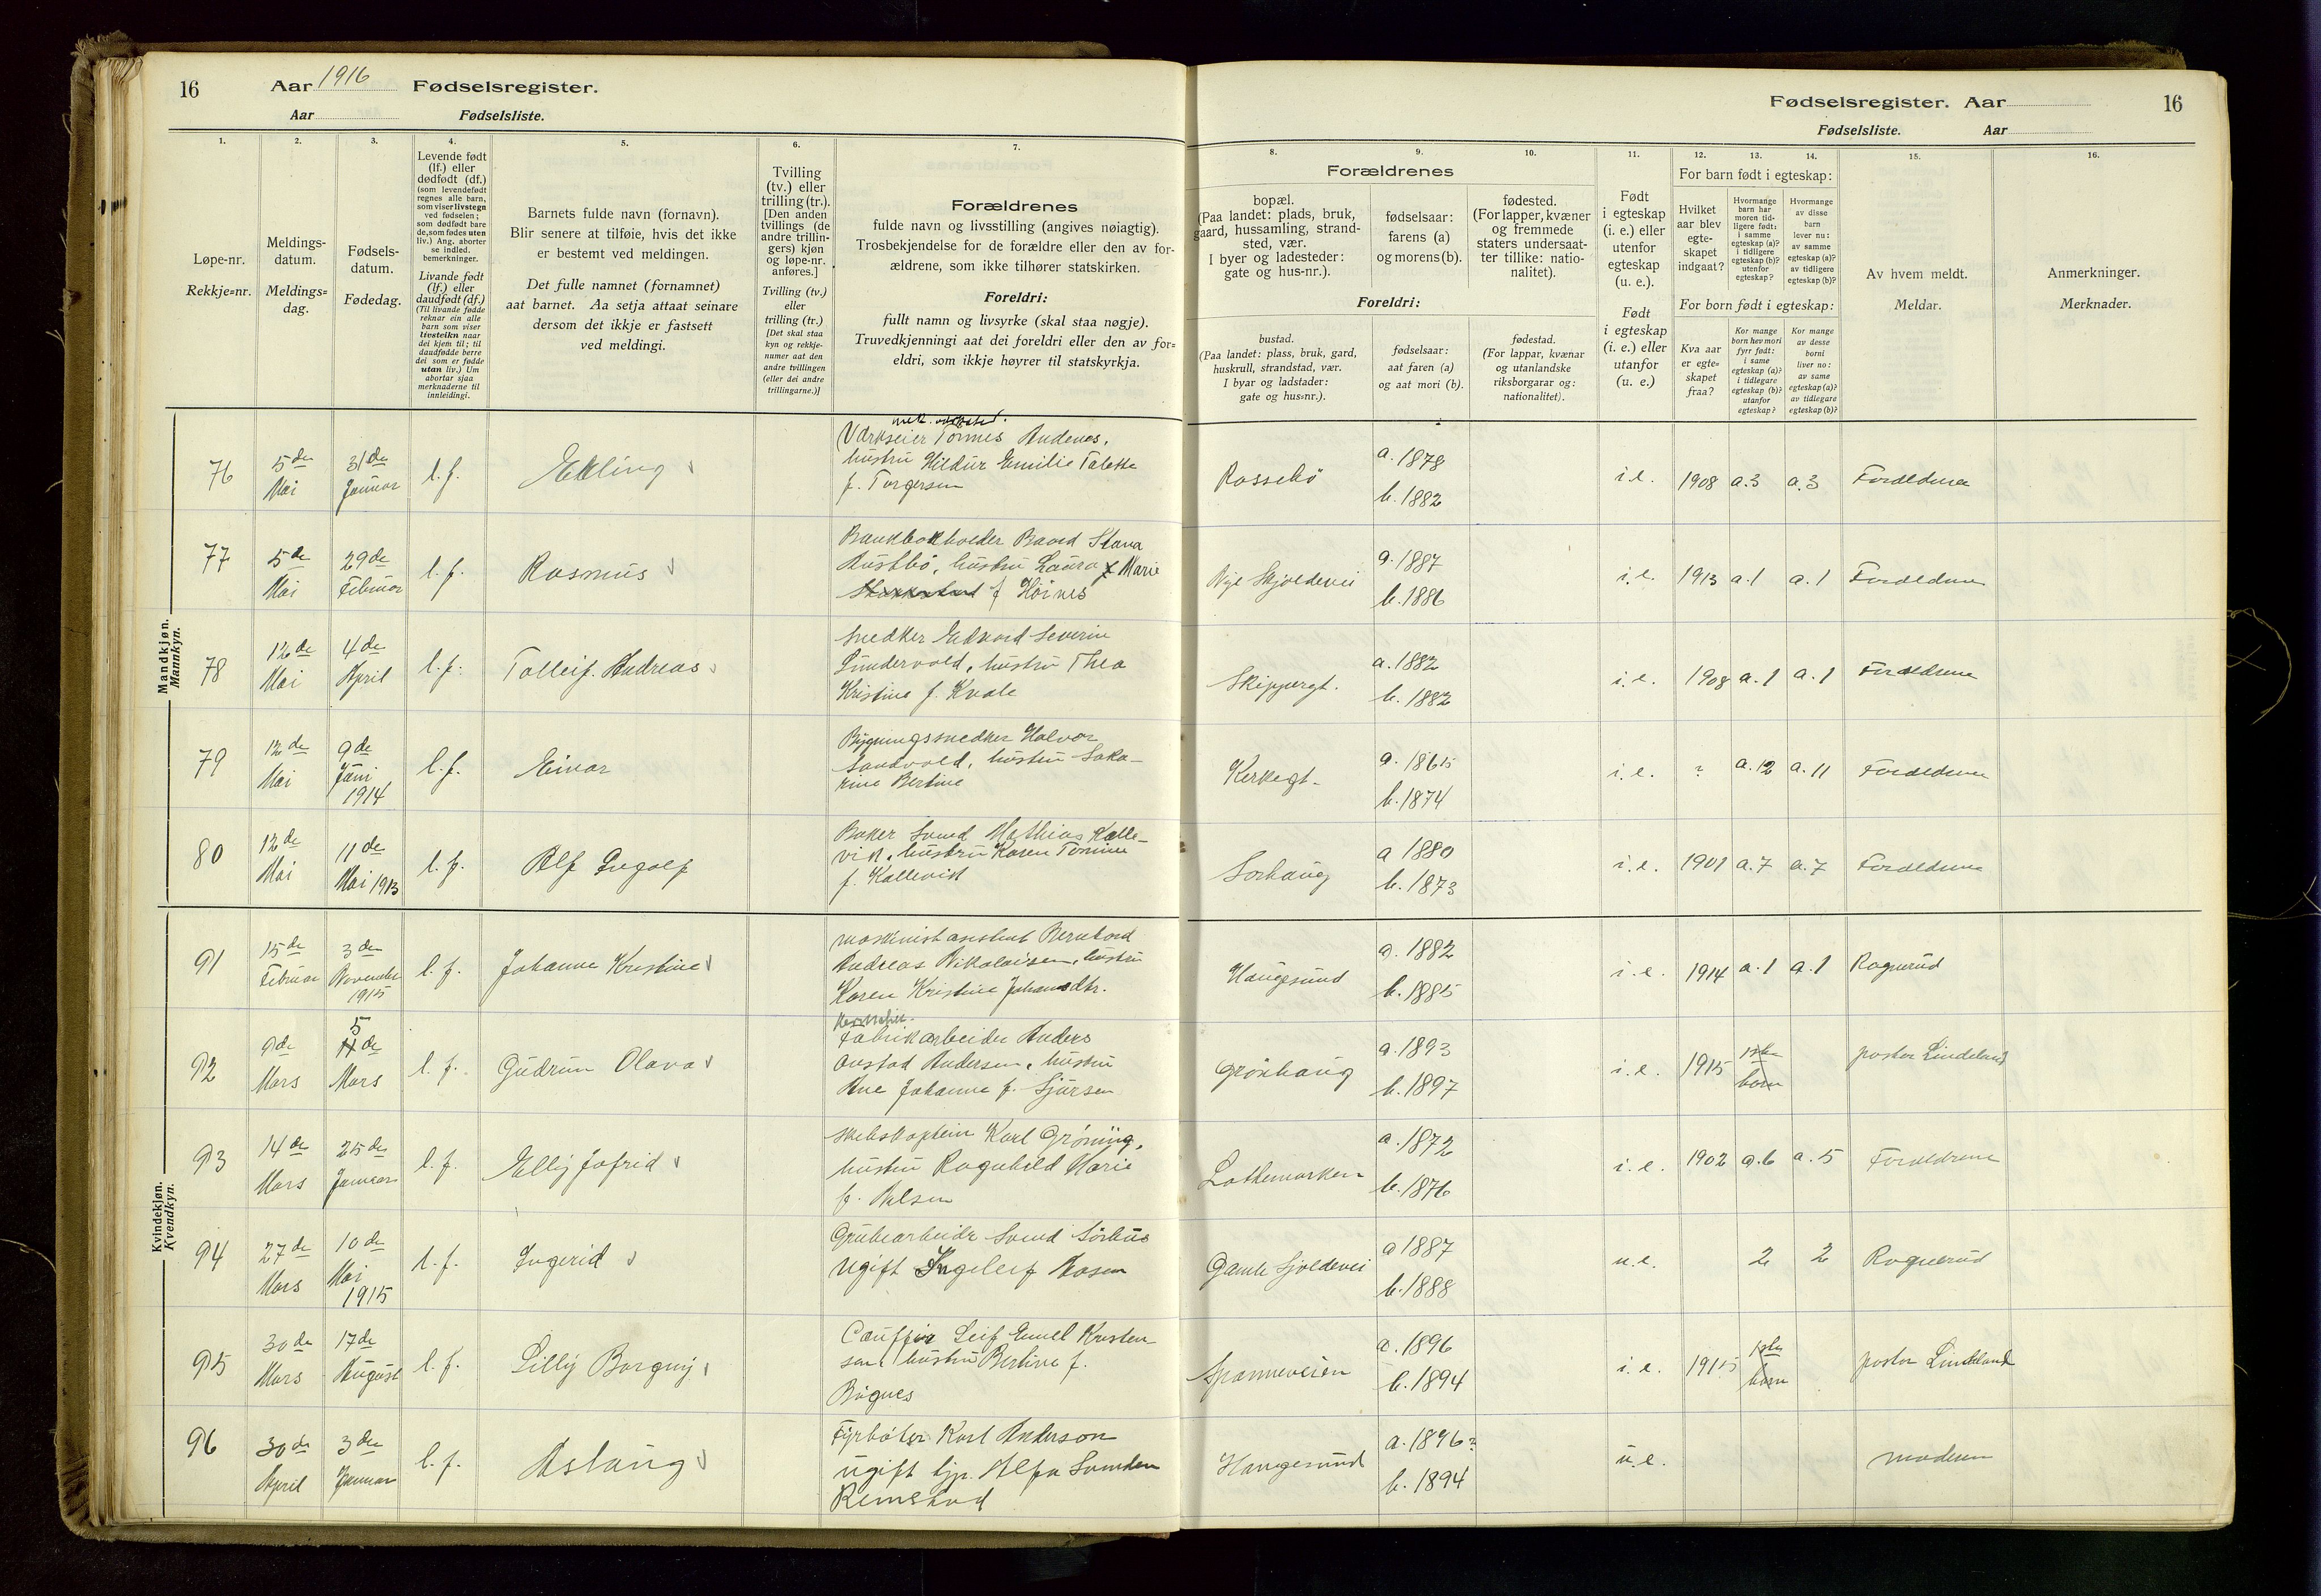 16
Aar 1916 Fødselsregister.
Aar Fødselsliste.
Fødselsregister. Aar
16
Fødselsliste. Aar
1.
Løpe-nr.
Rekkje=nr.
2.
Meldings-
datum.
Meldings=
dag.
3.
Fødsels-
datum.
Fødedag.
4.
Levende født
(lf.) eller
dødfødt (df.)
(som levendefødt
regnes alle barn,
som viser livstegn
ved fødselen;
som dødfødt bare
de, som fødes uten
liv.) Ang. aborter
se indled.
bemerkninger.
Livande født
(lf.) eller
daudfødt (df.)
(Til livande fødde
reknar ein alle
barn som viser
livsteikn naar
dei kjem til; til
daudfødde berre
dei som er fødde
utan liv.) Um
abortar sjaa
merknaderne til
innleidingi.
5.
Barnets fulde navn (fornavn).
Blir senere at tilføie, hvis det ikke
er bestemt ved meldingen.
Det fulle namnet (fornamnet)
aat barnet. Aa setja attaat seinare
dersom det ikkje er fastsett
ved meldingi.
6.
Tvilling
(tv.) eller
trilling (tr.).
[Den anden
tvillings (de
andre trillin-
gers) kjøn
og løpe-nr.
anføres.]
Tvilling (tv.)
eller
trilling (tr.)
[Det skal staa
kyn og rekkje-
numer aat den
andre tvillingen
(eller dei andre
trillingarne.)]
7.
Forældrenes
fulde navn og livsstilling (angives nøiagtig).
Trosbekjendelse for de forældre eller den av for-
ældrene, som ikke tilhører statskirken.
Foreldri:
fullt namn og livsyrke (skal staa nøgje).
Truvedkjenningi aat dei foreldri eller den av for=
eldri, som ikkje høyrer til statskyrkja.
Forældrenes
8.
bopæl.
(Paa landet: plads, bruk,
gaard, hussamling, strand-
sted, vær.
I byer og ladesteder:
gate og hus-nr.).
9.
fødselsaar:
farens (a)
og morens (b).
10.
fødested.
(For lapper, kvæner
og fremmede
staters undersaat-
ter tillike: natio-
nalitet).
Foreldri:
bustad.
(Paa landet: plass, bruk, gard,
huskrull, strandstad, vær.
I byar og ladstader:
gate og hus=nr.).
fødselsaar:
aat faren (a)
og aat mori (b).
fødestad.
(For lappar, kvænar
og utanlandske
riksborgarar og:
nationalitet).
11.
Født
i egteskap
(i. e.) eller
utenfor
egteskap
(u. e.).
Født
i egteskap
(i. e.) eller
utanfor
(u. e.)
For barn født i egteskap:
12.
Hvilket
aar blev
egte-
skapet
indgaat?
13.
Hvormange
barn har
moren tid-
ligere født:
i samme
egteskap (a)?
i tidligere
egteskap (b)?
utenfor
egteskap?
14.
Hvormange
av disse
barn
lever nu:
av samme
egteskap (a)?
av tidligere
egteskap (b)?
For born født i egteskap:
Kva aar
er egte=
skapet
fraa?
Kor mange
born hev mori
fyrr født:
i same
egteskap (a)?
i tidlegare
egteskap (b)?
utanfor
egteskap?
Kor mange
av desse
borni
liver no:
av same
egteskap (a)?
av tidlegare
egteskap (b)?
15.
Av hvem meldt.
Meldar.
16.
Anmerkninger.
Merknader.
Mandkjøn.
Mannkyn.
76
5de Mai
31de Januar
l. f.
Elling
Verkseier Tønnes Andenes,
hustru Hildur Emilie Talette
f. Torgersen
Rossebø
a. 1878
b. 1882
i. e.
1908
a. 3
a. 3
Forældrene
77
5de Mai
29de Februar
l. f.
Rasmus
Bankbokholder Baard Stava
Austbø, hustru Laura Marie
f Høines
Nye Skjoldevei
a. 1887
b. 1886
i. e.
1913
a. 1
a. 1
Forældrene
78
12de Mai
4de April
l. f.
Tolleif Andreas
Snedker Edvard Severin
Lundervold, hustru Thea
Kristine f. Kvale
Skippergt.
a. 1882
b. 1882
i. e.
1908
a. 1
a. 1
Forældrene
79
12de Mai
9de Juni 1914
l. f.
Einar
Bygningssnedker Halvor
Sandvold, hustru Saka-
rine Bertine
Kirkegt.
a. 1865
b. 1874
i. e.
?
a. 12
a. 11
Forældrene
80
12de Mai
11de Mai 1913
l. f.
Alf Ingolf
Baker Svend Mathias Kalle-
vik, hustru Karen Tomine
f. Kallevik
Sørhaug
a 1880
b. 1873
i. e.
1901
a. 7
a. 7
Forældrene
Kvindekjøn.
Kvendkyn.
91
15de Februar
3de November 1915
l. f.
Johanne Kristine
Maskinist assistent Bernhard
Andreas Nikolaisen, hustru
Karen Kristine Johansdtr.
Haugesund
a. 1882
b. 1885
i. e.
1914
a. 1
a. 1
Rognerud
92
9de Mars
5 de Mars
l. f.
Gudrun Olava
Fabrikarbeider Anders
Austad Andersen, hustru
Ane Johanne f. Sjursen
Grønhaug
a. 1893
b. 1897
i. e.
1915
1ste barn
pastor Lindeland
93
14de Mars
25de Januar
l. f.
Elly Jofrid
Skibskaptein Karl Grøning,
hustru Ragnhild Marie
f. Nilsen
Lothemarken
a. 1872
b. 1876
i. e.
1902
a. 6
a. 5
Forældrene
94
27de Mars
10de Mai 1915
l. f.
Ingerid
Grubearbeider Svend Sørhus
Ugift Ingeleif Aasen
Gamle Sjoldevei
a 1887
b. 1888
u. e.
2
2
Rognerud
95
30de Mars
17de August
l. f.
Lilly Borgny
Leif Emil Kristen
sen, hustru Bertine f.
Bugnes
Spanneveien
a. 1896
b. 1894
i. e.
1915
1ste barn
pastor Lindeland
96
30de April
3de Januar
l. f.
Aslaug
Fyrbøter Karl Anderson
ugift tjp. Alfa
Remstad
Haugesund
a. 1896?
b. 1894
u. e.
moderen